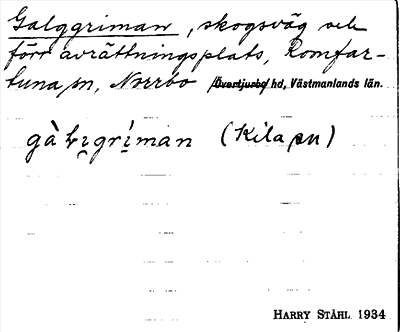 Galggriman, skogsväg och
förr avrättningsplats, Romfar-
tuna sn, Norrbo Övertjurbo hd, Västmanlands län.
gàḷgrímàn (Kila sn)
HARRY STÅHL 1934